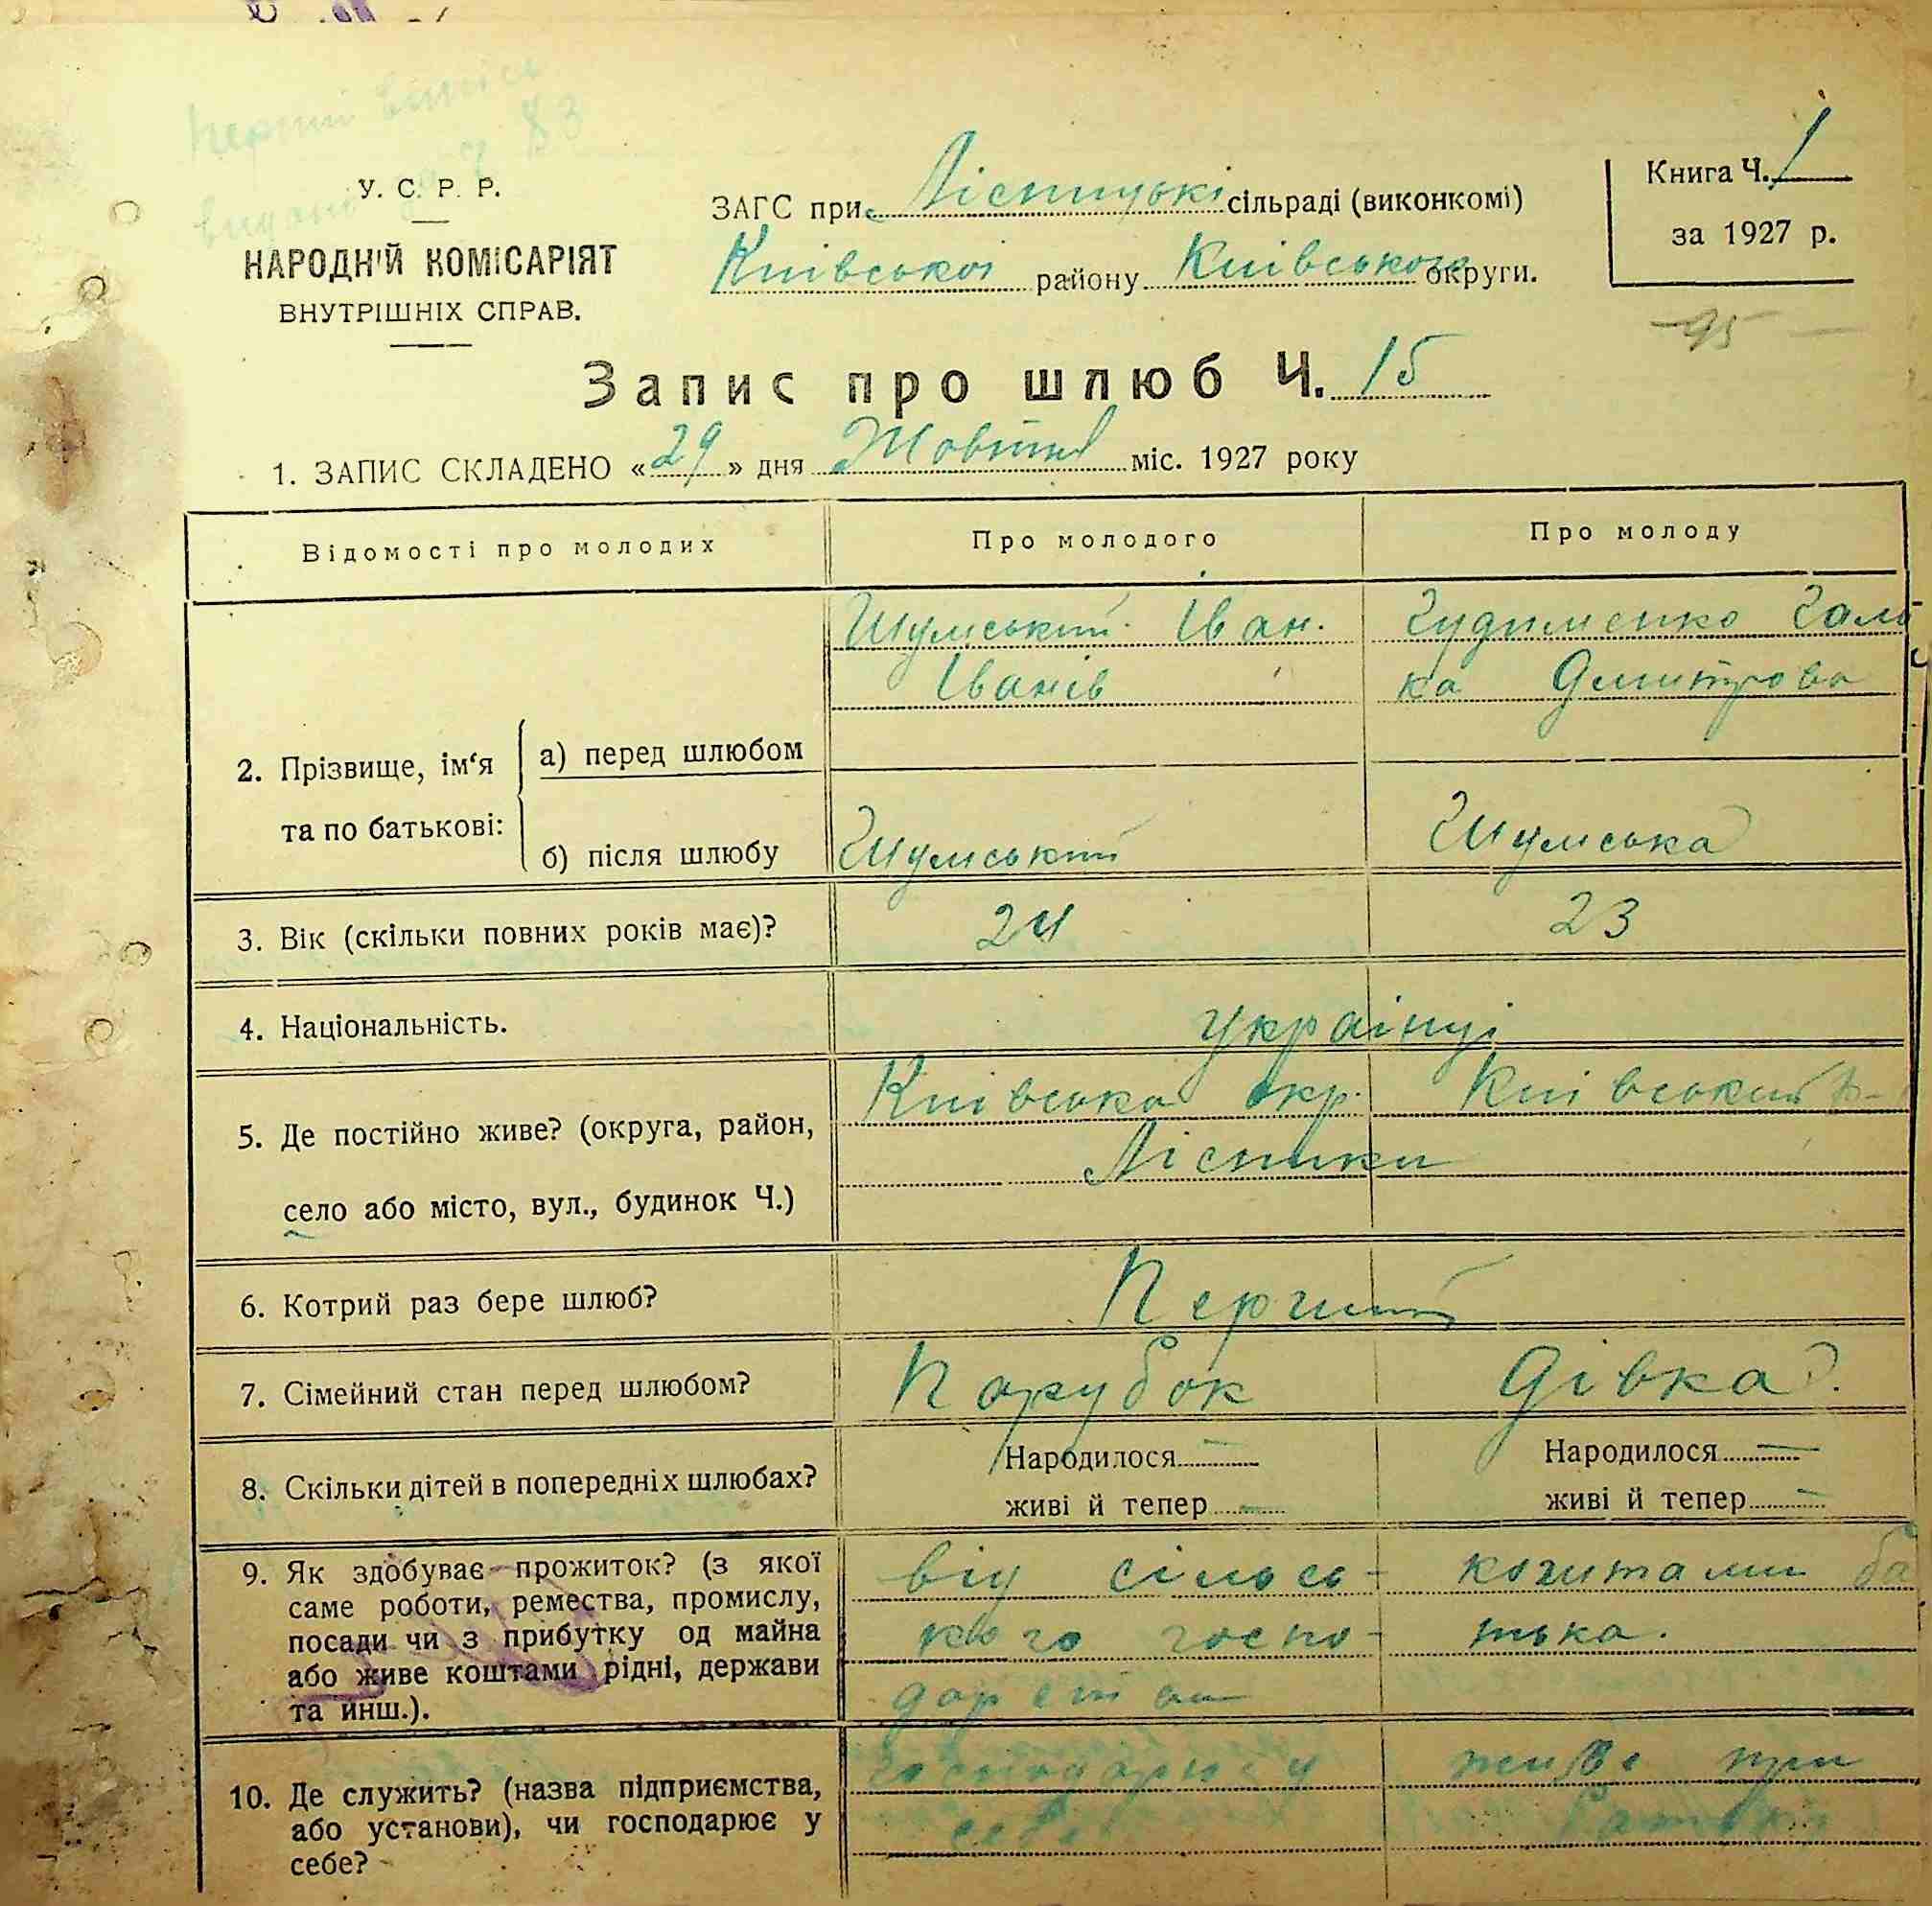 Перший випись
видані 83
У. С. Р. Р.
НАРОДНІЙ КОМІСАРІЯТ
ВНУТРІШНІХ СПРАВ.
ЗАГС при Лісницькі сільраді (виконкомі)
Київської району Київської округи.
Книга Ч. 1
за 1927 р.
95
Запис про шлюб Ч. 15
1. ЗАПИС СКЛАДЕНО «29» дня Жовтня міс. 1927 року
Відомості про молодих
Про молодого
Про молоду
2. Прізвище, ім‘я та по батькові:
а) перед шлюбом
Шумський Іван.
Іванів
Гудименко Гал
ка Дмитрова
б) після шлюбу
Шумський
Шумська
3. Вік (скільки повних років має)?
24
23
4. Національність.
українці
5. Де постійно живе? (округа, район,
село або місто, вул., будинок Ч.)
Київська окр. Київський р-
Лісники
6. Котрий раз бере шлюб?
Перший
7. Сімейний стан перед шлюбом?
Парубок
Дівка
8. Скільки дітей в попередніх шлюбах?
Народилося —
живі й тепер —
Народилося —
живі й тепер —
9. Як здобуває прожиток? (з якої
саме роботи, ремества, промислу,
посади чи з прибутку од майна
або живе коштами рідні, держави
та инш.).
від сільсь-
кого госпо-
дарства
коштами ба
тька.
10. Де служить? (назва підприємства,
або установи), чи господарює у
себе?
господарює у
себе
живе при
батькі